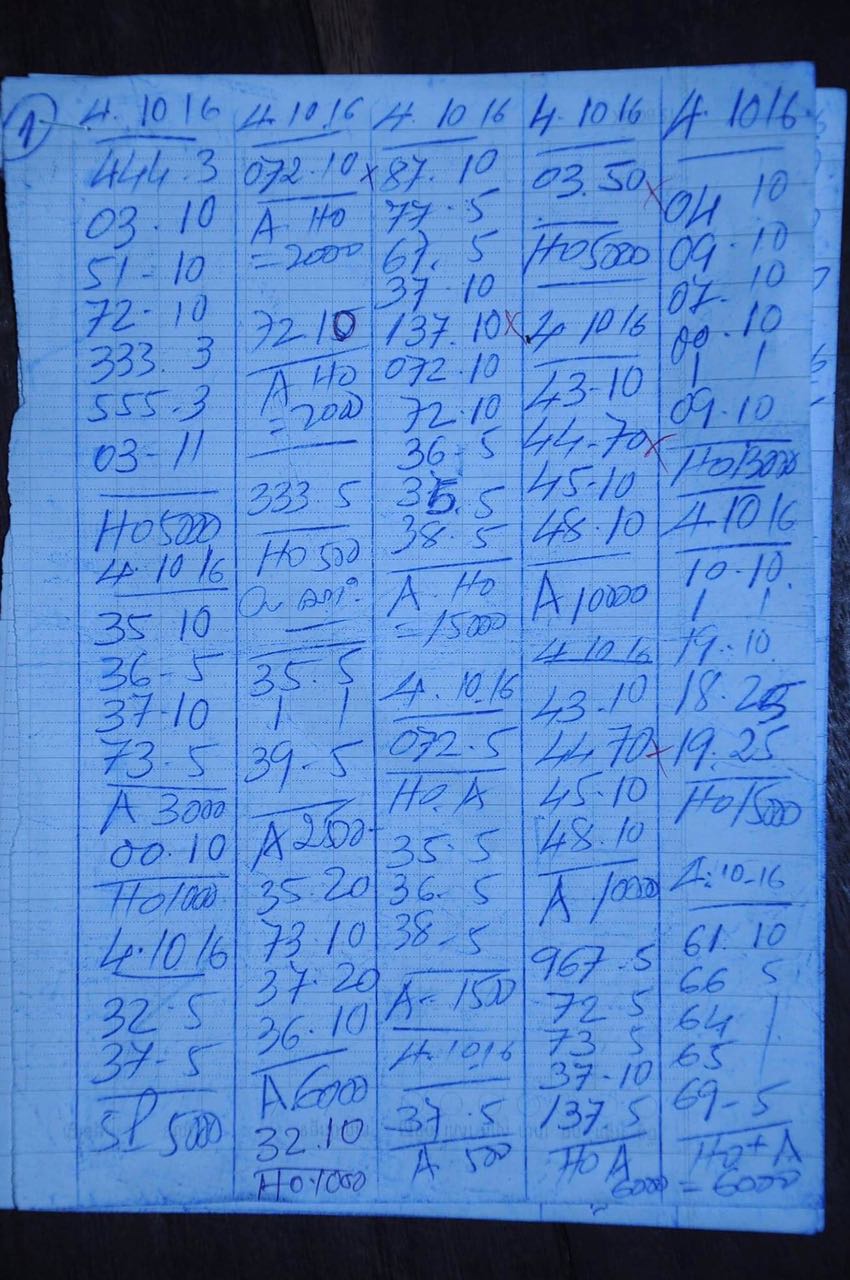 1
4. 10 16
444. 3
03. 10
51- 10
72- 10
333. 3
555-3
03- 11
HO 5000
4. 10 16
35 10
36- 5
37-10
73- 5
A 3000
00. 10
HO 1000
4. 10 16
32. 5
37- 5
5000
4. 10.16
072.10 x
A HO
=2000
72.10
A HO
=2000
333. 5
HO 500
35. 5
1 1
39- 5
A 2500-
35.20
73.10
37.20
36.10
A 6000
32.10
HO 1000
4. 10 16
87. 10
77. 5
67. 5
37- 10
137. 10 x
072.10
72.10
36- 5
35. 5
38. 5
A. HO
=15000
4. 10.16
072.5
HO. A
35. 5
36- 5
38- 5
A- 1500
4.10.16
37. 5
A 500
4. 10 16
03. 50 x
HO 5000
4. 10 16
43-10
44-70 x
45-10
48.10
A 10000
4 10 16
43.10
44.70 x
45.10
48.10
A 10000
967-5
72. 5
73 5
37-10
137 5
HO A
6000
4. 10 16
04 10
09. 10
07. 10
00. 10
1 1
09.10
HO 13000
4.10 16
10-10.
1 1
19.10
18.25
19.25
HO 15000
4.10-16
61.10
66 5
64 1
65
69- 5
HO + A
= 6000